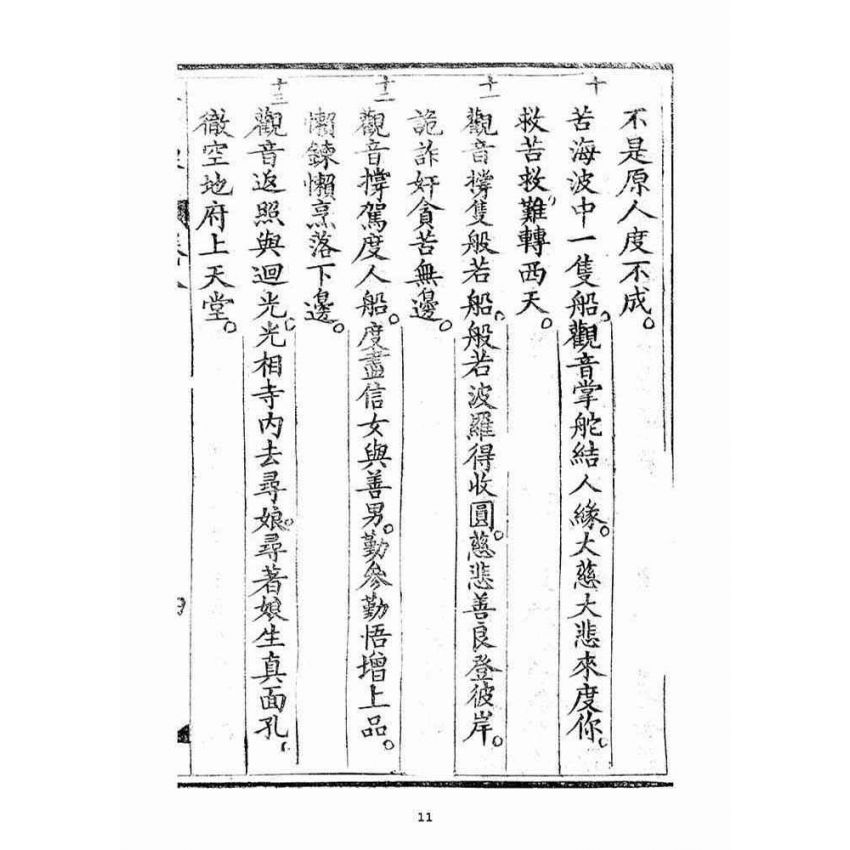 不是原人度不成。
十
苦海波中一隻船。觀音掌舵結人緣。大慈大悲來度你。
救苦救難轉西天。
十一
觀音撐隻般若船。般若波羅得收圓。慈悲善良登彼岸。
詭詐奸貪苦無邊。
十二
觀音撐駕度人船。度盡信女與善男。勤參勤悟增上品。
懶鍊懶烹落下邊。
十三
觀音返照與迴光。光相寺內去尋娘。尋著娘生真面孔。
徹空地府上天堂。
11